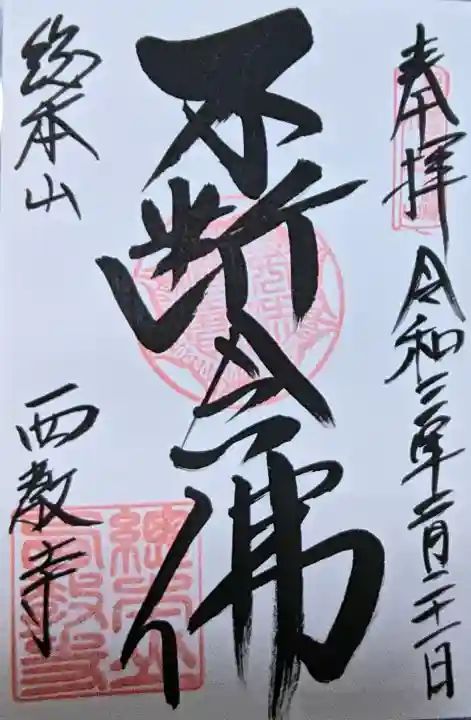 奉拝 令和三年二月二十一日
不断念佛
総本山 西教寺
總本山西教寺